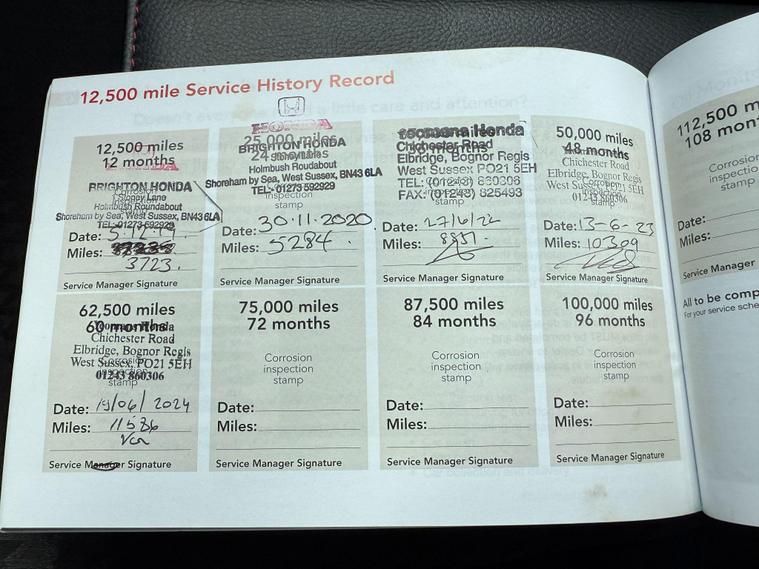 12,500 mile Service History Record
12,500 miles
12 months
BRIGHTON HONDA
1 Stoney Lane
Holmbush Roundabout
Shoreham by Sea, West Sussex, BN43 6LA
TEL: 01273 592929
Date: 5.12.19
Miles:
3723.
Service Manager Signature
HONDA
25,000 miles
24 months
BRIGHTON HONDA
Holmbush Roudabout
Shoreham by Sea, West Sussex, BN43 6LA
TEL: 01273 592929
inspection
stamp
Date: 30.11.2020
Miles: 5284.
Service Manager Signature
Yeomans Honda
Chichester Road
Elbridge, Bognor Regis
West Sussex PO21 5EH
TEL: (01243) 860306
FAX: (01243) 825493
Date: 27/6/22
Miles: 8837.
Service Manager Signature
50,000 miles
48 months
Chichester Road
Elbridge, Bognor Regis
West Sussex, PO21 5EH
01243 860306
Date: 13-6-23
Miles: 10309
Service Manager Signature
62,500 miles
60 months
Yeomans Honda
Chichester Road
Elbridge, Bognor Regis
West Sussex, PO21 5EH
01243 860306
stamp
Date: 19/06/2024
Miles: 11586
Service Manager Signature
75,000 miles
72 months
Corrosion
inspection
stamp
Date:
Miles:
Service Manager Signature
87,500 miles
84 months
Corrosion
inspection
stamp
Date:
Miles:
Service Manager Signature
100,000 miles
96 months
Corrosion
inspection
stamp
Date:
Miles:
Service Manager Signature
112,500 m
108 mon
Corrosi
inspecti
stamp
Date:
Miles:
Service Manager
All to be comp
For your service sche